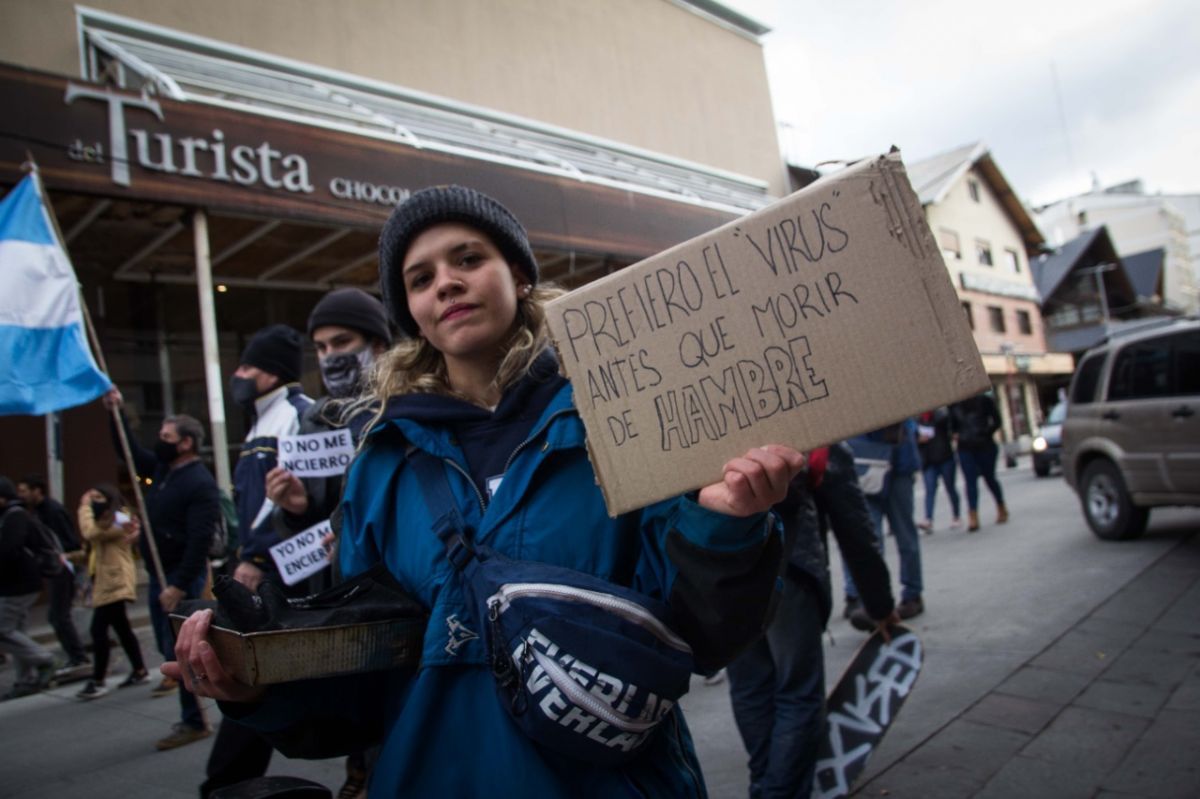 del Turista CHOCOL
PREFIERO EL "VIRUS"
ANTES QUE MORIR
DE HAMBRE
YO NO ME
ENCIERRO
YO NO ME
ENCIERRO
EVERLAST